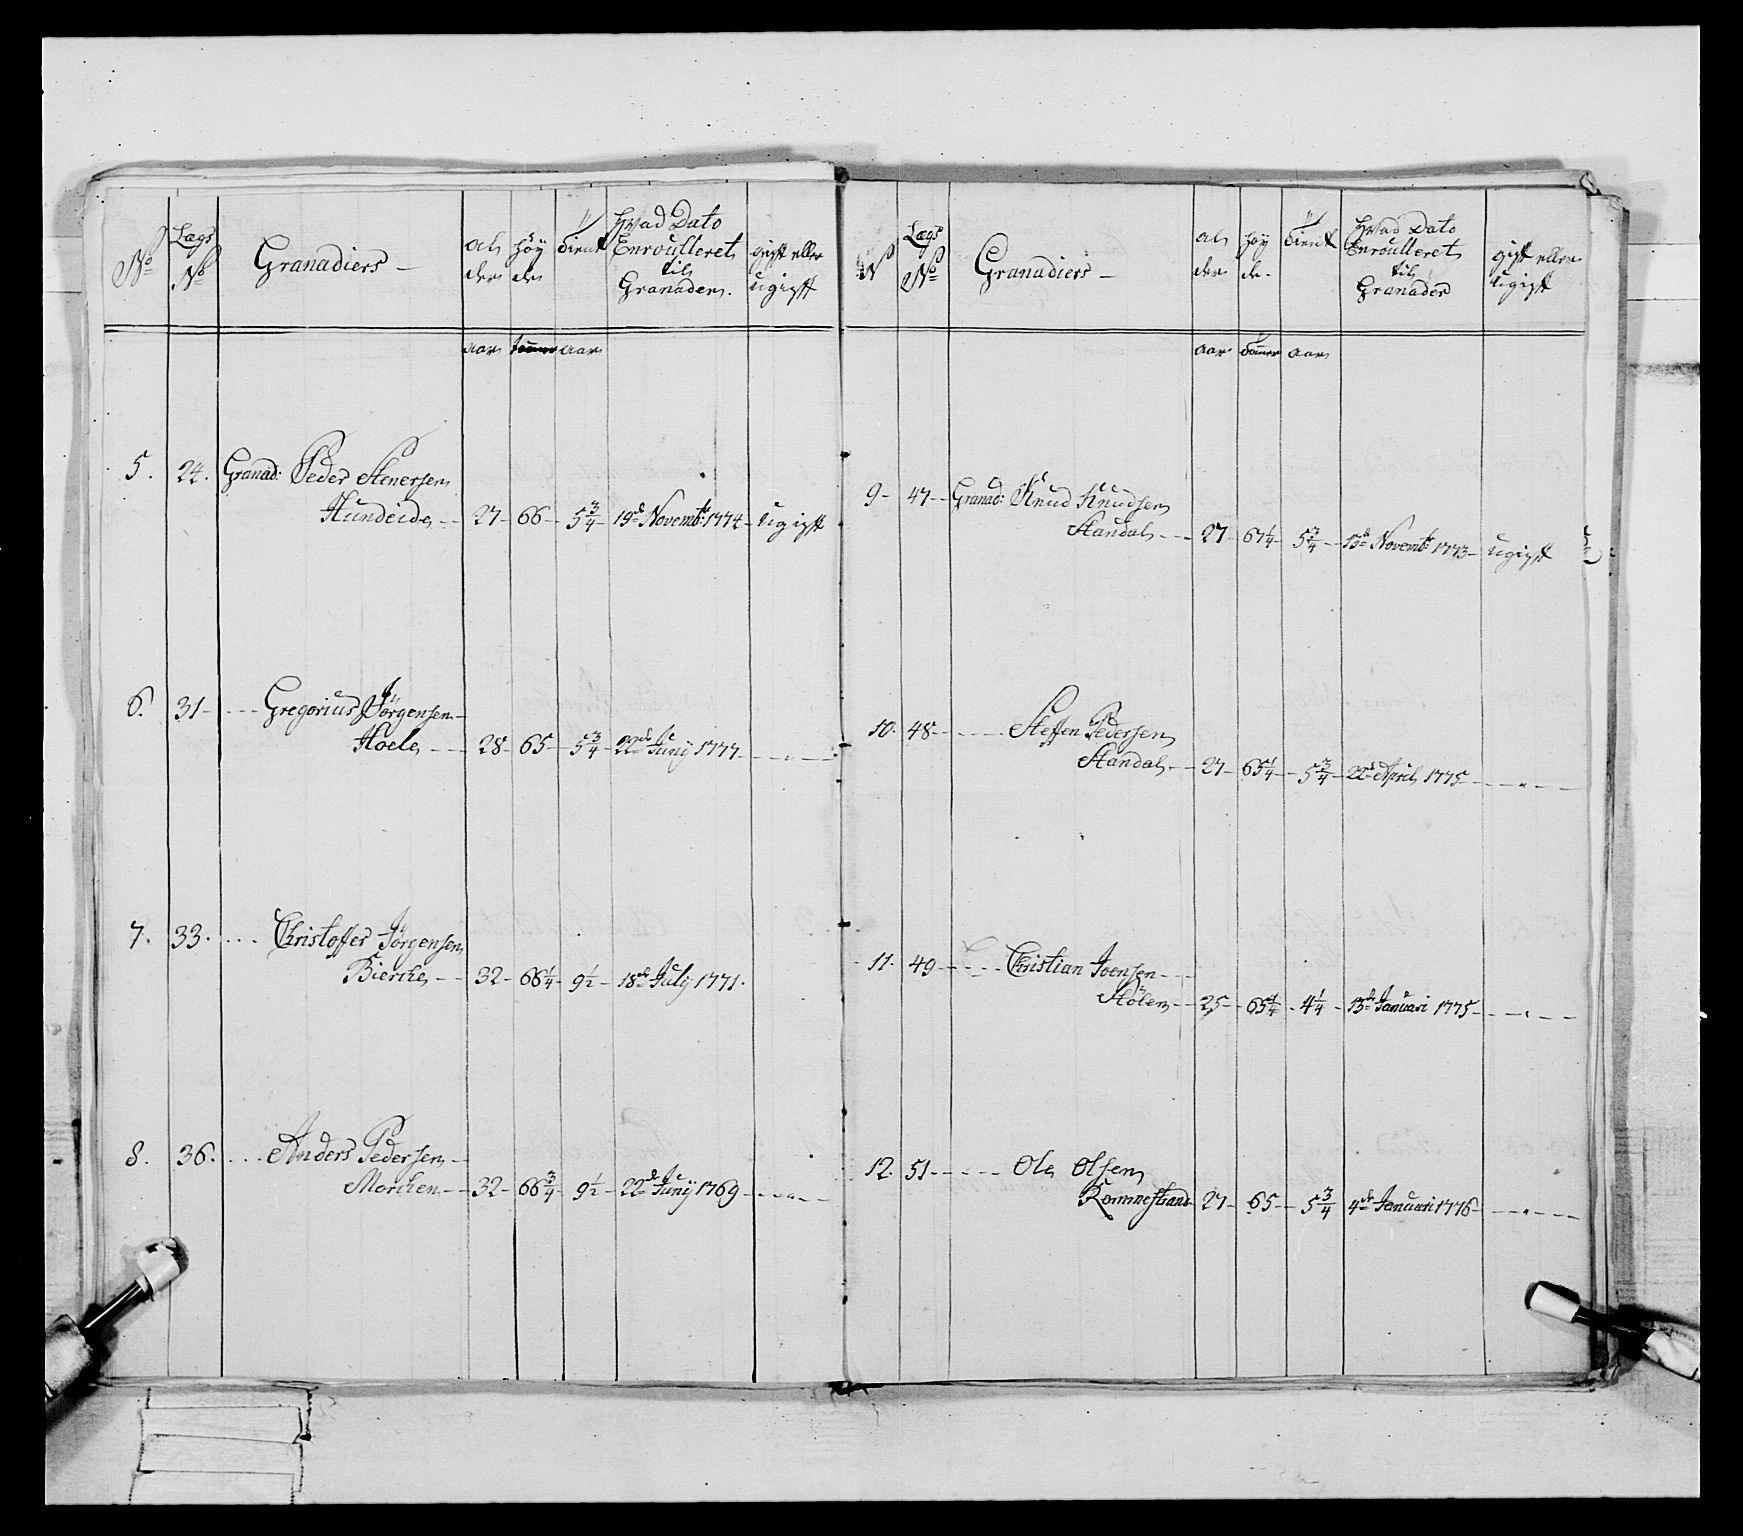 No Lægs No Granadiers - al der höy de tient Hvad Dato Enroulleret til Granader. gift eller ugift
aar tomer aar
5. 24. Granad: Peder Stenersen
Hundeide - 27 - 66 - 5 3/4 - 19de Novembr: 1774 - Ugift
6. 31 - - - - Gregorius Jörgensen -
Hoele - - 28 - 65 - 5 3/4 - 22de Junij 1777 - - - " - -
7. 33. . . . Christoffer Jörgensen
Bierche - - 32 - 66 1/4 - 9 1/2 - 18de July 1771.
8. 36. . . . Anders Pedersen -
Morchen - - 32 - 66 3/4 - 9 1/2 - 22de Junij 1769 - - - " - -
N Lægs No Granadiers - al der höy de. tient Hvad Dato Enroulleret til Granader gift eller ugift
aar Tomer aar
9 - 47 - - Granad: Knud Knudsen
Standal - - - 27 - 67 1/4 - 5 3/4 - 13de Novembr 1773 - ugift
10. 48 - - - - - Steffen Pedersen
Standal - - 27 - 65 1/4 - 5 3/4 - 22de April 1775 - - - " - -
11. 49 - - - - Christian Joensen - - -
Stölen - - 25 - 65 1/4 - 4 1/4 - 13de Januari 1775 - - - " - -
12. 51 - - - - - Ole Olsen
Rommestrand 27 - 65 - 5 3/4 4de Januari 1776 - - - " - -